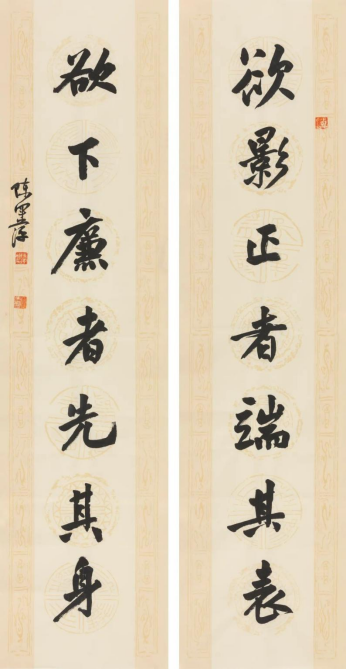 欲影正者端其表
欲下廉者先其身
陈墨